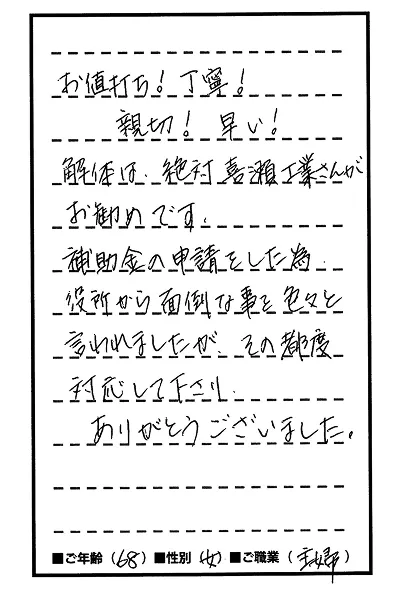 お値打ち！丁寧！
親切！早い！
解体は、絶対喜瀬工業さんが
お勧めです。
補助金の申請をした為、
役所から面倒な事を色々と
言われましたが、その都度
対応して下さり、
ありがとうございました。
■ご年齢（68）■性別（女）■ご職業（主婦）